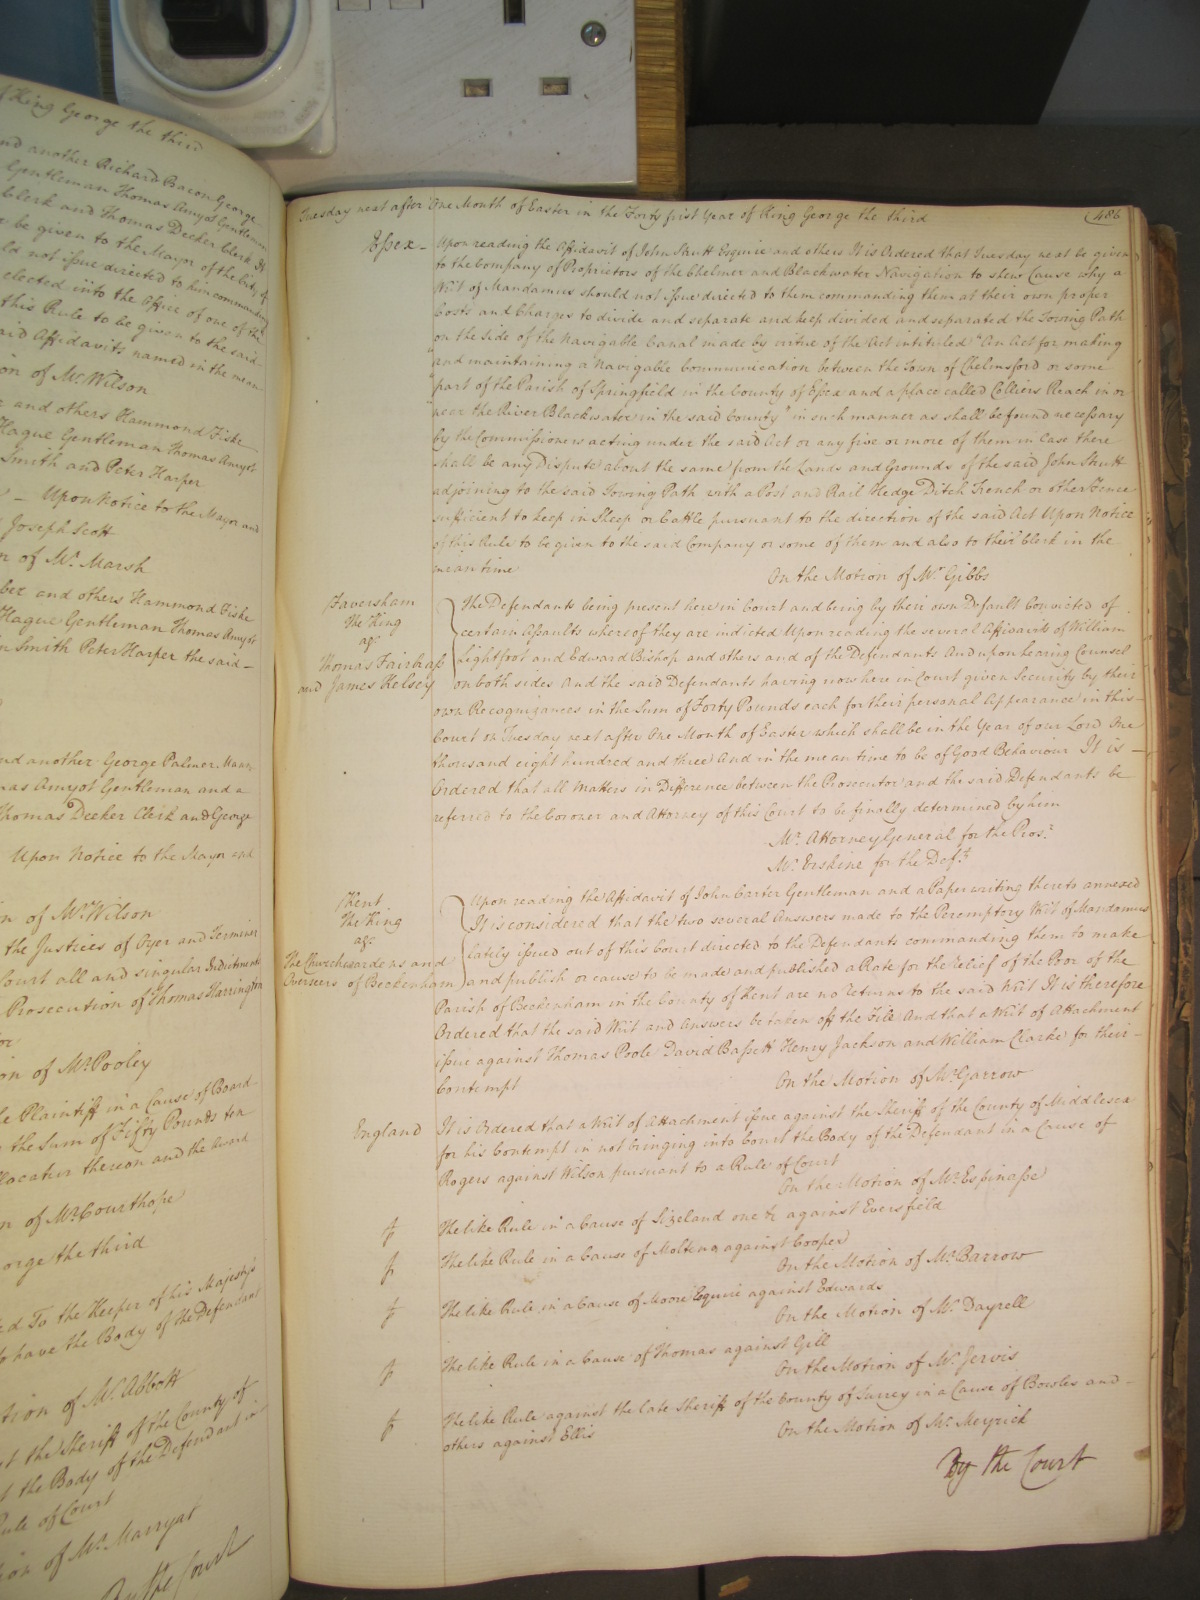 f King George the third
nd another Richard Bacon George
Gentleman Thomas Amyot Gentleman
Clerk and Thomas Decker Clerk It
be given to the Mayor of the City of
ld not issue directed to him commanding
elected into the Office of one of the
this Rule to be given to the said
aid Affidavits named in the mean
on of Mr. Wilson
and others Hammond Fiske
Hague Gentleman Thomas Amyot
Smith and Peter Harper
Upon Notice to the Mayor and
Joseph Scott
n of Mr. Marsh
ber and others Hammond Fiske
Hague Gentleman Thomas Amyot
n Smith Peter Harper the said
nd another George Palmer
mas Amyot Gentleman and a
Thomas Decker Clerk and George
Upon Notice to the Mayor and
n of Mr. Wilson
the Justices of Oyer and Terminer
Court all and singular Indictments
Prosecution of Thomas Harrington
on of Mr. Pooley
le Plaintiff in a Cause of Board
the Sum of Fifty Pounds ten
llocatur thereon and the award
n of Mr. Courthope
orge the third
ed To the Keeper of his Majestys
to have the Body of the Defendant
tion of Mr. Abbott
st the Sheriff of the County of
t the Body of the Defendant in
Rule of Court
ion of Mr. Marryat
By the Court
Tuesday next after One Month of Easter in the Forty first Year of King George the third
486
Essex
Upon reading the Affidavit of John Strutt Esquire and others It is Ordered that Tuesday next be given
to the Company of Proprietors of the Chelmer and Blackwater Navigation to shew Cause why a
Writ of Mandamus should not issue directed to them commanding them at their own proper
Costs and Charges to divide and separate and keep divided and separated the Towing Path
on the side of the Navigable Canal made by virtue of the Act intituled "An Act for making
"and maintaining a Navigable Communication between the Town of Chelmsford or some
"part of the Parish of Springfield in the County of Essex and a place called Colliers Reach in or
"near the River Blackwater in the said County" in such manner as shall be found necessary
by the Commissioners acting under the said Act or any five or more of them in Case there
shall be any Dispute about the same from the Lands and Grounds of the said John Strutt
adjoining to the said Towing Path with a Post and Rail Hedge Ditch Trench or other Fence
sufficient to keep in Sheep or Cattle pursuant to the direction of the said Act Upon Notice
of this Rule to be given to the said Company or some of them and also to their Clerk in the
mean time
On the Motion of Mr. Gibbs
Faversham
The King
agt.
Thomas Fairbrass
and James Kelsey
The Defendants being present here in Court and being by their own Default Convicted of
certain Assaults whereof they are indicted Upon reading the several Affidavits of William
Lightfoot and Edward Bishop and others and of the Defendants And upon hearing Counsel
on both sides And the said Defendants having now here in Court given Security by their
own Recognizances in the Sum of Forty Pounds each for their personal Appearance in this
Court on Tuesday next after One Month of Easter which shall be in the Year of our Lord One
thousand eight hundred and three And in the mean time to be of Good Behaviour It is
Ordered that all Matters in Difference between the Prosecutor and the said Defendants be
referred to the Coroner and Attorney of this Court to be finally determined by him
Mr. Attorney General for the Prosr.
Mr. Erskine for the Deft.
Kent
The King
agt.
The Churchwardens and
Overseers of Beckenham
Upon reading the Affidavit of John Carter Gentleman and a Paper writing thereto annexed
It is considered that the two several Answers made to the Peremptory Writ of Mandamus
lately issued out of this Court directed to the Defendants commanding them to make
and publish or cause to be made and published a Rate for the Relief of the Poor of the
Parish of Beckenham in the County of Kent are no returns to the said Writ It is therefore
Ordered that the said Writ and Answers be taken off the File And that a Writ of Attachment
issue against Thomas Poole David Bassett Henry Jackson and William Clarke for their
Contempt
On the Motion of Mr. Garrow
England
It is Ordered that a Writ of Attachment issue against the Sheriff of the County of Middlesex
for his Contempt in not bringing into Court the Body of the Defendant in a Cause of
Rogers against Wilson pursuant to a Rule of Court
On the Motion of Mr. Espinasse
The like Rule in a Cause of Sizeland one &c against Eversfield
The like Rule in a Cause of Molteno against Cooper
On the Motion of Mr. Barrow
The like Rule in a Cause of Moore Esquire against Edwards
On the Motion of Mr. Dayrell
The like Rule in a Cause of Thomas against Gill
On the Motion of Mr. Jervis
The like Rule against the late Sheriff of the County of Surrey in a Cause of Bowles and
others against Ellis
On the Motion of Mr. Meyrick
By the Court